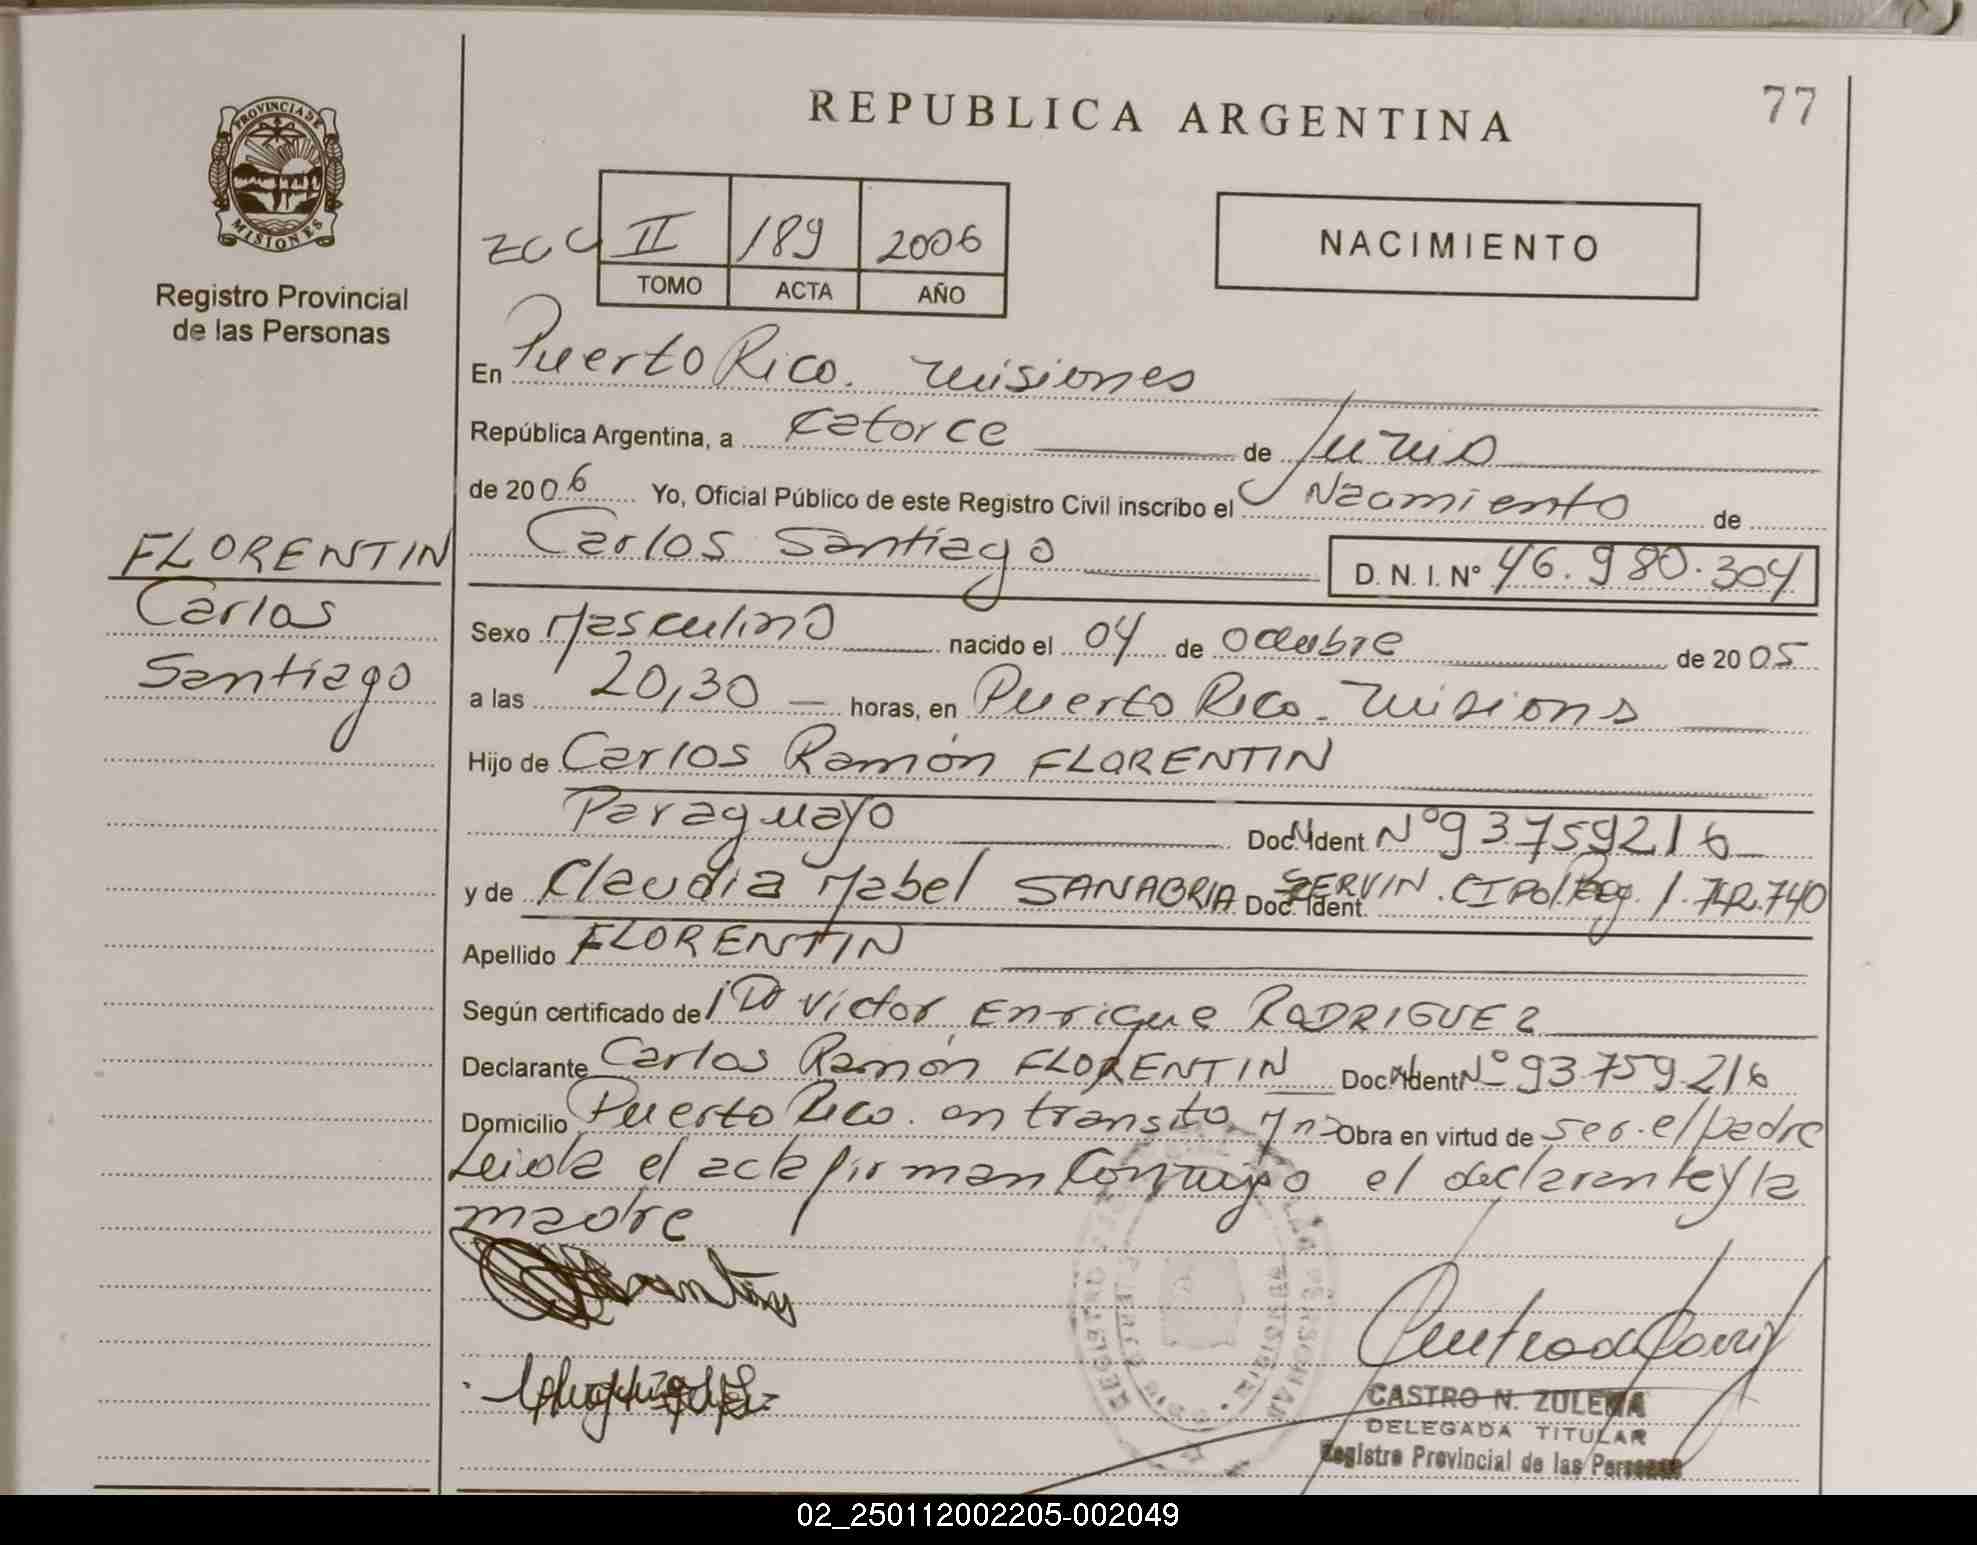 REPUBLICA ARGENTINA
77
PROVINCIA DE
MISIONES
Registro Provincial
de las Personas
II 189 2006
TOMO ACTA AÑO
NACIMIENTO
En Puerto Rico. Misiones
República Argentina, a catorce de Junio
de 2006 Yo, Oficial Público de este Registro Civil inscribo el Nacimiento de
Carlos Santiago D. N. I. N° 46.980.304
FLORENTIN
Carlos
Santiago
Sexo Masculino nacido el 04 de Octubre de 2005
a las 20,30 — horas, en Puerto Rico. Misions
Hijo de Carlos Ramón FLORENTIN
Paraguayo Doc. Ident. N° 93759216
y de Claudia Mabel SANABRIA SERVIN. Doc. Ident. CI Pol.
Apellido FLORENTIN
Según certificado de Victor Enrique RODRIGUEZ
Declarante Carlos Ramón FLORENTIN Doc. Ident N° 93.759.216
Domicilio Puerto Rico. en transito Obra en virtud de ser el padre
Leida el acta firman Conmigo el declarante y la
madre
CASTRO N. ZULEMA
DELEGADA TITULAR
Registro Provincial de las Personas
02_250112002205-002049